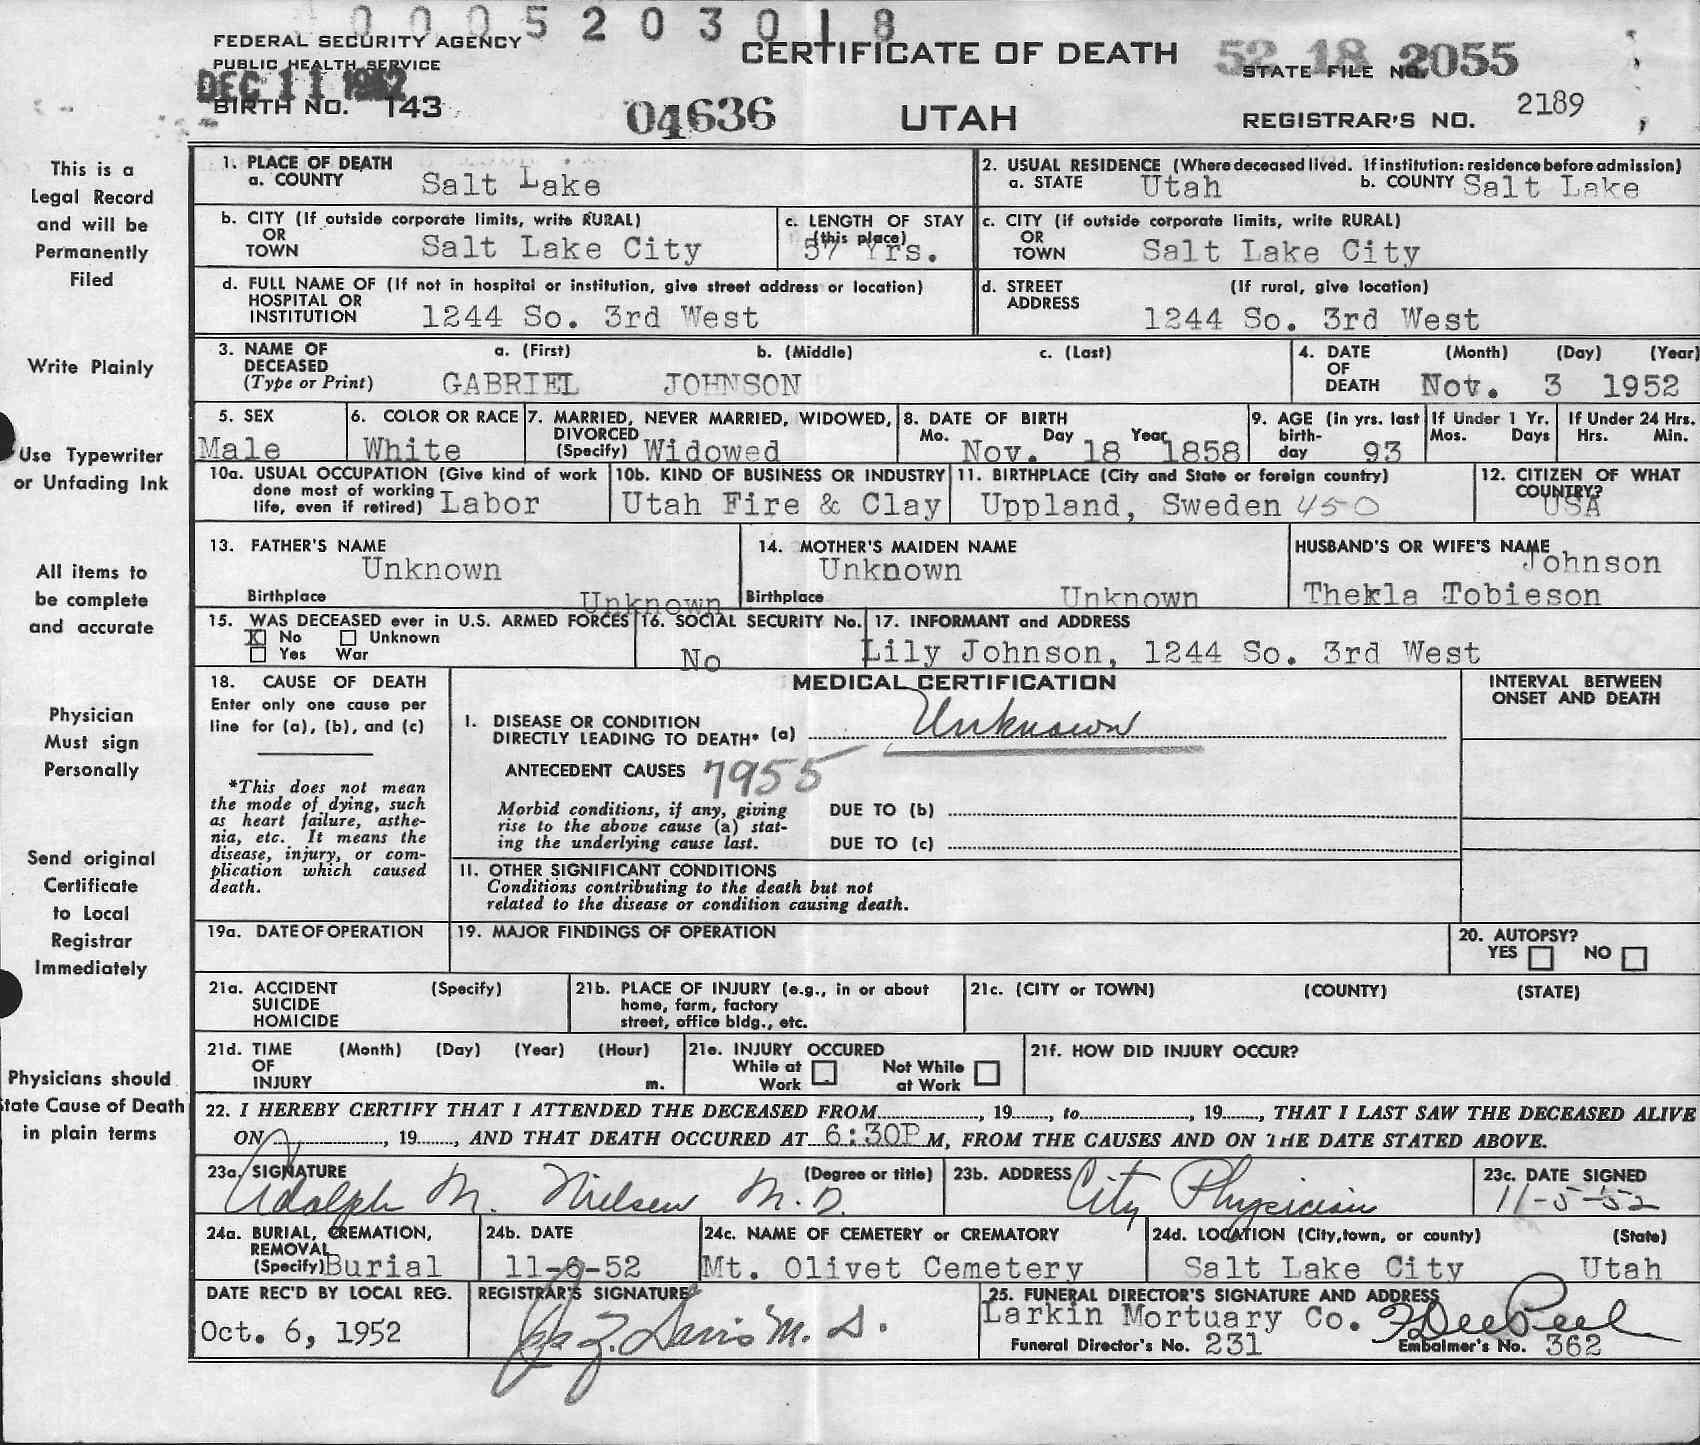 0005203018
FEDERAL SECURITY AGENCY
PUBLIC HEALTH SERVICE
CERTIFICATE OF DEATH
52 18 2055
STATE FILE NO.
DEC 11 1952
BIRTH NO. 143
04636
UTAH
REGISTRAR'S NO. 2189
This is a
Legal Record
and will be
Permanently
Filed
Write Plainly
Use Typewriter
or Unfading Ink
All items to
be complete
and accurate
Physician
Must sign
Personally
Send original
Certificate
to Local
Registrar
Immediately
Physicians should
State Cause of Death
in plain terms
1. PLACE OF DEATH
a. COUNTY Salt Lake
2. USUAL RESIDENCE (Where deceased lived. If institution: residence before admission)
a. STATE Utah b. COUNTY Salt Lake
b. CITY (If outside corporate limits, write RURAL)
OR
TOWN Salt Lake City
c. LENGTH OF STAY
(this place)
57 Yrs.
c. CITY (if outside corporate limits, write RURAL)
OR
TOWN Salt Lake City
d. FULL NAME OF (If not in hospital or institution, give street address or location)
HOSPITAL OR
INSTITUTION 1244 So. 3rd West
d. STREET (If rural, give location)
ADDRESS
1244 So. 3rd West
3. NAME OF a. (First) b. (Middle) c. (Last)
DECEASED
(Type or Print) GABRIEL JOHNSON
4. DATE (Month) (Day) (Year)
OF
DEATH Nov. 3 1952
5. SEX
Male
6. COLOR OR RACE
White
7. MARRIED, NEVER MARRIED, WIDOWED,
DIVORCED
(Specify) Widowed
8. DATE OF BIRTH
Mo. Day Year
Nov. 18 1858
9. AGE (in yrs. last
birth-
day 93
If Under 1 Yr.
Mos. Days
If Under 24 Hrs.
Hrs. Min.
10a. USUAL OCCUPATION (Give kind of work
done most of working
life, even if retired) Labor
10b. KIND OF BUSINESS OR INDUSTRY
Utah Fire & Clay
11. BIRTHPLACE (City and State or foreign country)
Uppland, Sweden 450
12. CITIZEN OF WHAT
COUNTRY?
USA
13. FATHER'S NAME
Unknown
Birthplace Unknown
14. MOTHER'S MAIDEN NAME
Unknown
Birthplace Unknown
HUSBAND'S OR WIFE'S NAME
Johnson
Thekla Tobieson
15. WAS DECEASED ever in U.S. ARMED FORCES
X No Unknown
Yes War
16. SOCIAL SECURITY No.
No
17. INFORMANT and ADDRESS
Lily Johnson, 1244 So. 3rd West
18. CAUSE OF DEATH
Enter only one cause per
line for (a), (b), and (c)
*This does not mean
the mode of dying, such
as heart failure, asthe-
nia, etc. It means the
disease, injury, or com-
plication which caused
death.
MEDICAL CERTIFICATION
INTERVAL BETWEEN
ONSET AND DEATH
I. DISEASE OR CONDITION
DIRECTLY LEADING TO DEATH* (a) Unknown
ANTECEDENT CAUSES 7955
Morbid conditions, if any, giving
rise to the above cause (a) stat-
ing the underlying cause last.
DUE TO (b)
DUE TO (c)
II. OTHER SIGNIFICANT CONDITIONS
Conditions contributing to the death but not
related to the disease or condition causing death.
19a. DATE OF OPERATION
19. MAJOR FINDINGS OF OPERATION
20. AUTOPSY?
YES NO
21a. ACCIDENT (Specify)
SUICIDE
HOMICIDE
21b. PLACE OF INJURY (e.g., in or about
home, farm, factory
street, office bldg., etc.
21c. (CITY or TOWN) (COUNTY) (STATE)
21d. TIME (Month) (Day) (Year) (Hour)
OF
INJURY m.
21e. INJURY OCCURED
While at Work Not While at Work
21f. HOW DID INJURY OCCUR?
22. I HEREBY CERTIFY THAT I ATTENDED THE DECEASED FROM, 19, to, 19, THAT I LAST SAW THE DECEASED ALIVE
ON, 19, AND THAT DEATH OCCURED AT 6:30P M, FROM THE CAUSES AND ON THE DATE STATED ABOVE.
23a. SIGNATURE (Degree or title)
Adolph M. Nielsen M.D.
23b. ADDRESS
City Physician
23c. DATE SIGNED
11-5-52
24a. BURIAL, CREMATION,
REMOVAL
(Specify) Burial
24b. DATE
11-6-52
24c. NAME OF CEMETERY or CREMATORY
Mt. Olivet Cemetery
24d. LOCATION (City, town, or county) (State)
Salt Lake City Utah
DATE REC'D BY LOCAL REG.
Oct. 6, 1952
REGISTRAR'S SIGNATURE
Davis M.D.
25. FUNERAL DIRECTOR'S SIGNATURE AND ADDRESS
Larkin Mortuary Co.
Funeral Director's No. 231 Embalmer's No. 362